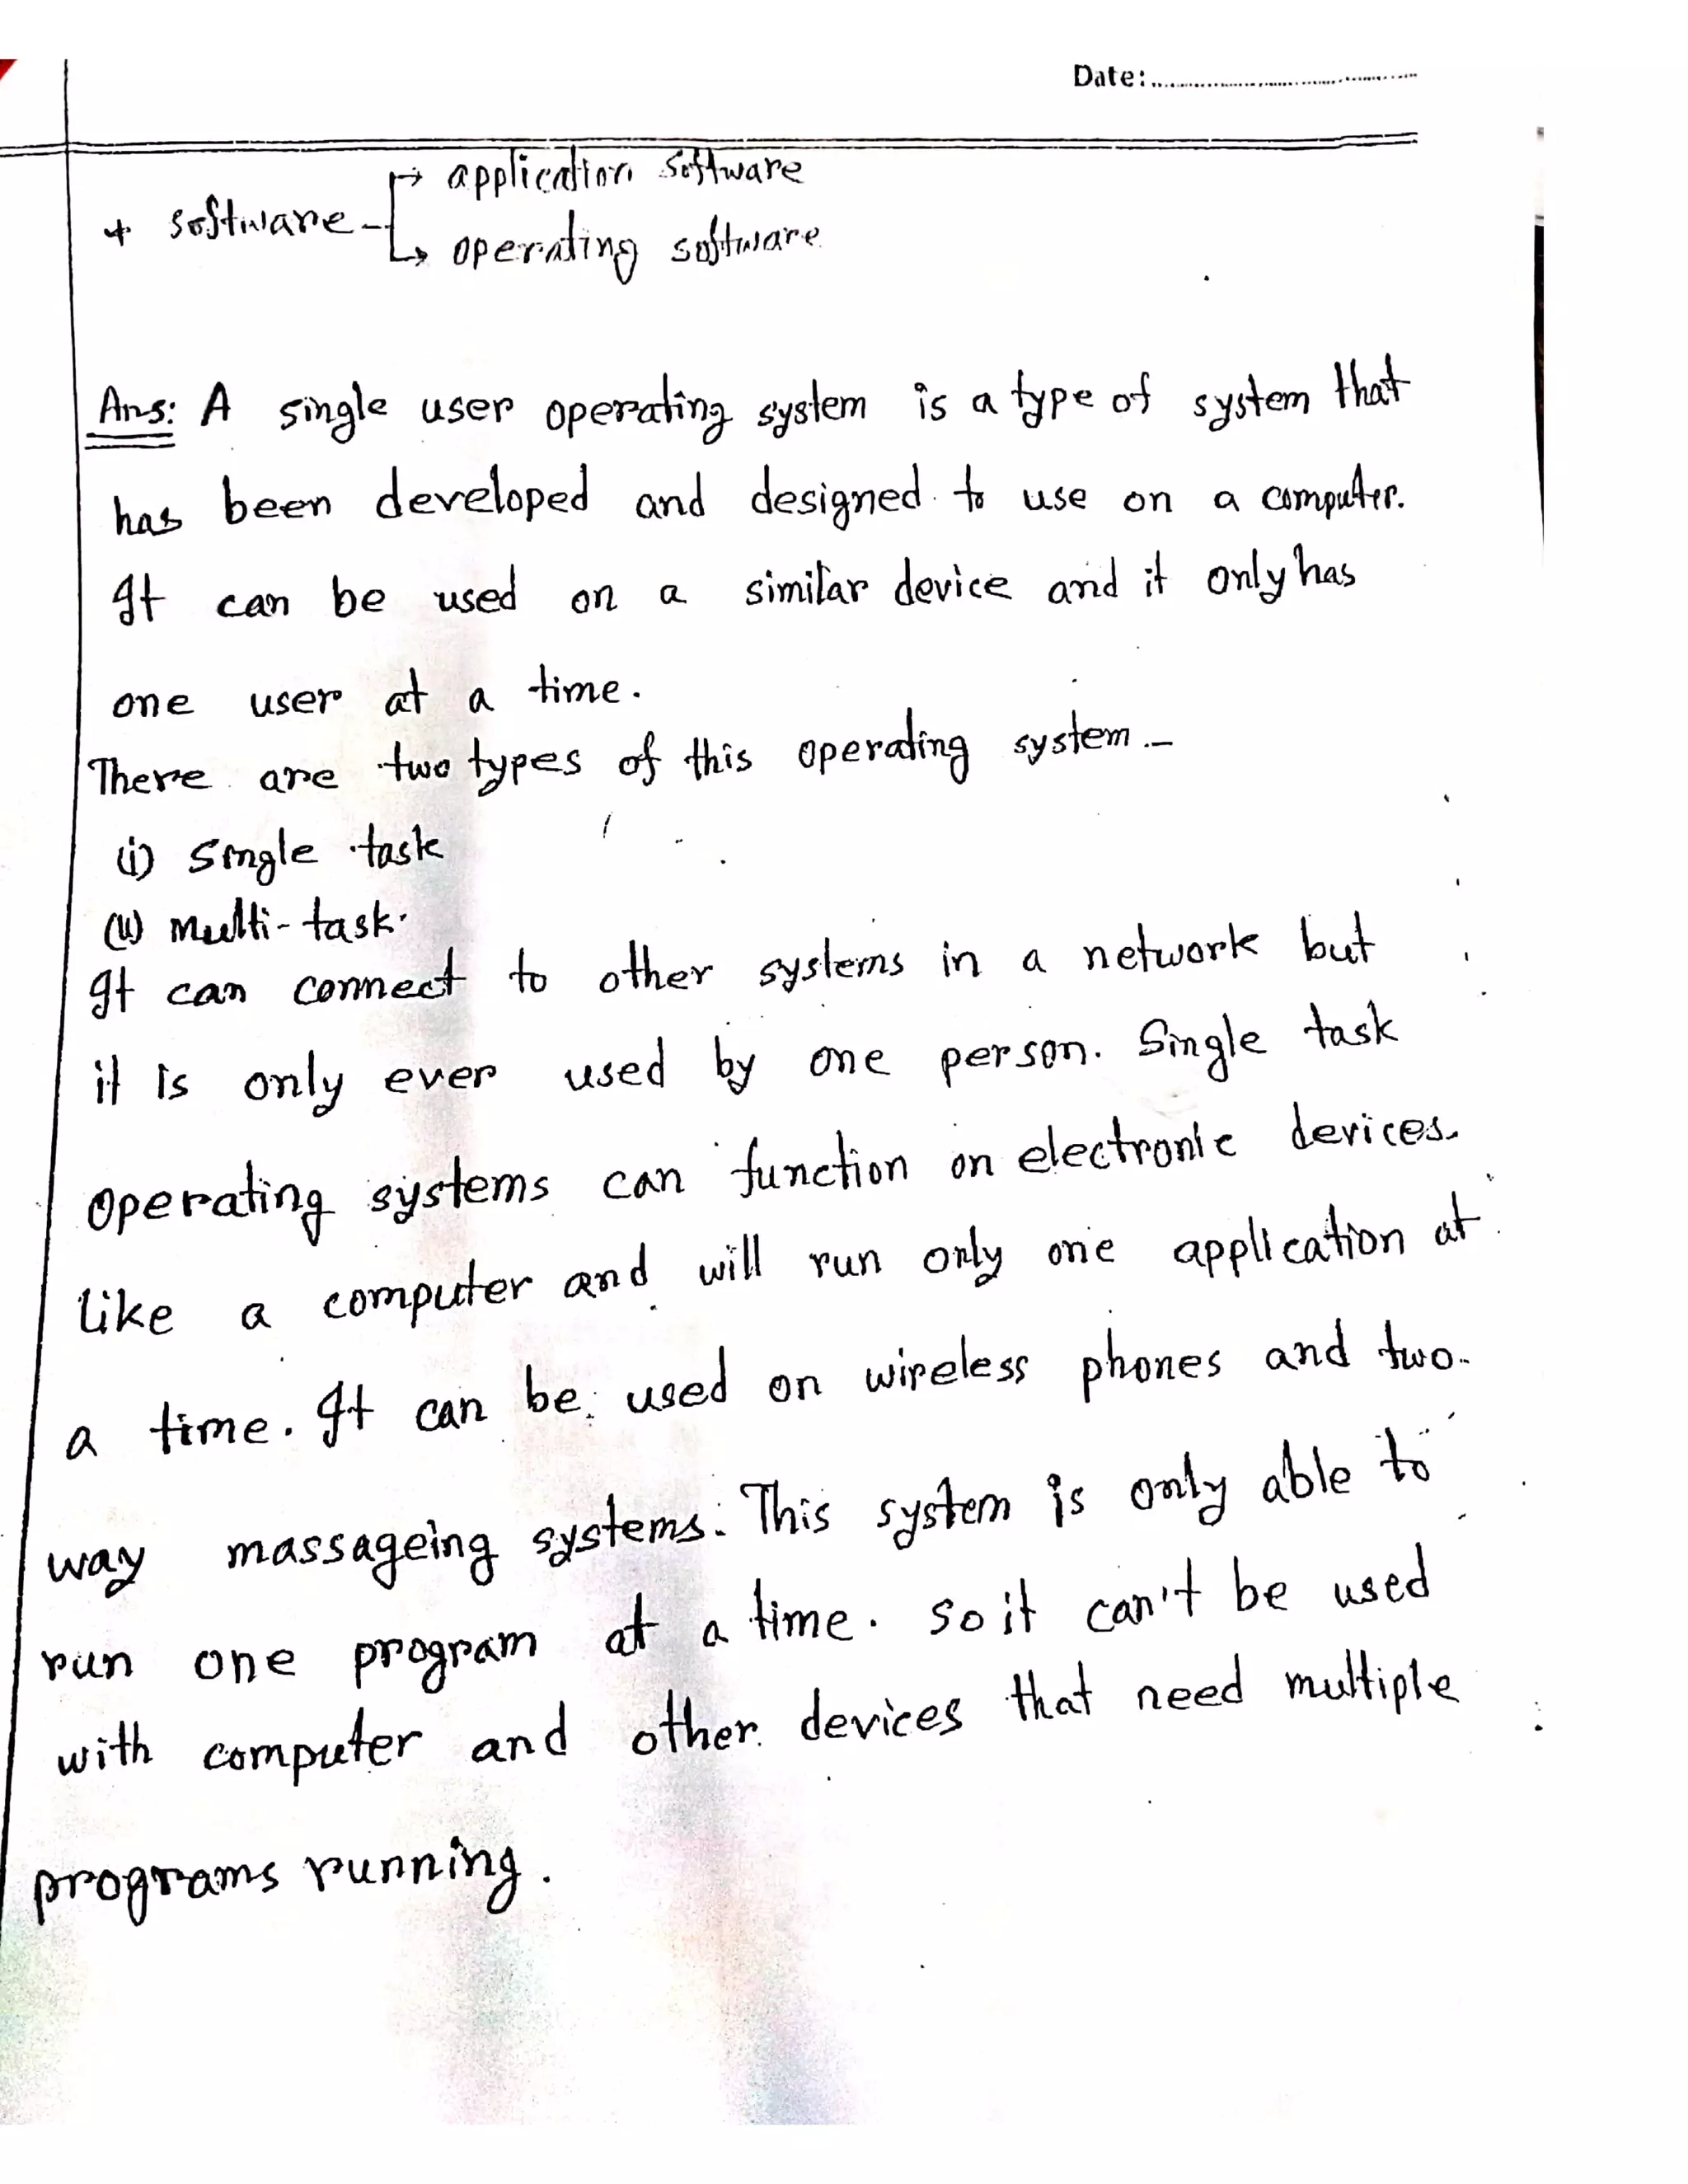 Date:
application software
+ software
operating software
Ans: A single user operating system is a type of system that
has been developed and designed to use on a computer.
It can be used on a similar device and it only has
one user at a time.
There are two types of this operating system -
(i) Single task
(ii) Multi-task.
It can connect to other systems in a network but
it is only ever used by one person. Single task
operating systems can function on electronic devices
like a computer and will run only one application at
a time. It can be used on wireless phones and two-
way massageing systems. This system is only able to
run one program at a time. So it can't be used
with computer and other devices that need multiple
programs running.